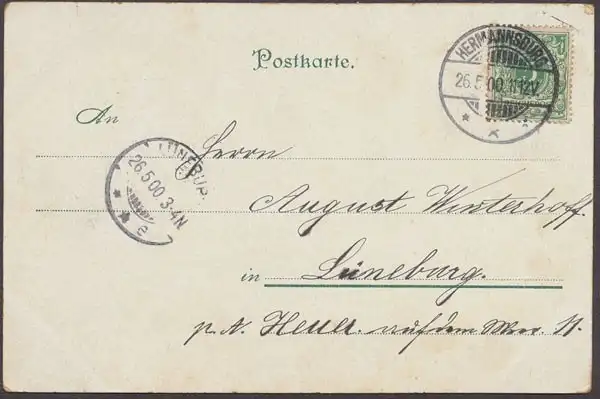 Postkarte.
HERMANNSBURG
26.5.00.11-12V.
An
Herrn
LÜNEBURG
26.5.00 3-4N
August Winterhoff.
in Lüneburg.
p. A. Heuer. auf dem